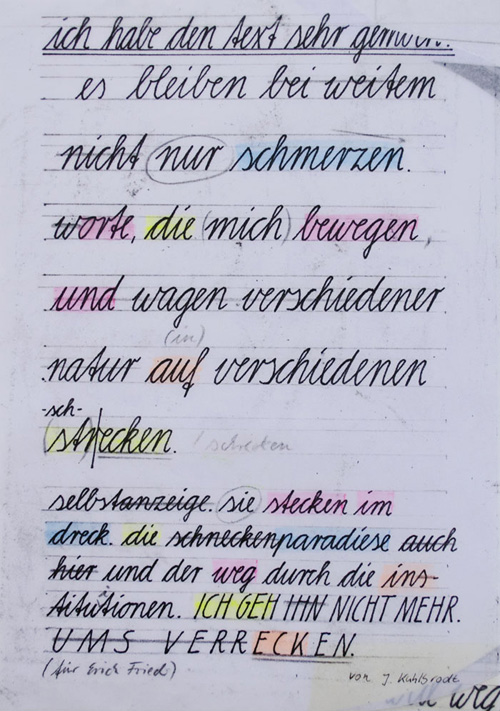 ich habe den text sehr
es bleiben bei weitem
nicht nur schmerzen.
worte, die (mich) bewegen,
und wagen verschiedener
(in)
natur auf verschiedenen
-sch-
(st)recken. / schrecken
selbstanzeige. sie stecken im
dreck. die schneckenparadiese auch
hier und der weg durch die ins-
titutionen. ICH GEH IHN NICHT MEHR.
UMS VERRECKEN.
(für Erich Fried) von J. Kuhlbrodt
weg